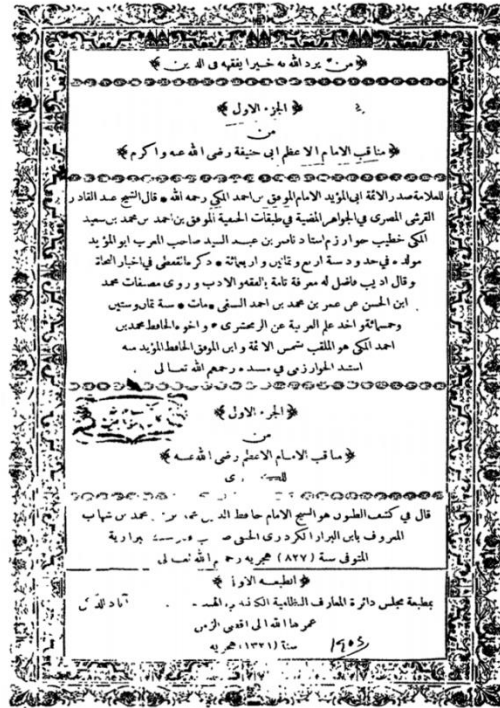 ﴿ من يرد الله به خيرا يفقهه فى الدين ﴾
﴿ الجزء الاول ﴾
من
﴿ مناقب الامام الاعظم ابى حنيفة رضى الله عنه واكرم ﴾
للعلامة صدر الائمة ابى المؤيد الامام الموفق بن احمد المكى رحمه الله * قال الشيخ عبد القادر
القرشى المصرى فى الجواهر المضية فى طبقات الحنفية الموفق بن احمد بن محمد بن سعيد
المكى خطيب خوارزم استاد ناصر بن عبد السيد صاحب المعرب ابو المؤيد
مولده فى حدود سنة اربع وثمانين واربعمائة * ذكره القفطى فى اخبار النحاة
وقال اديب فاضل له معرفة تامة بالفقه والادب وروى مصنفات محمد
ابن الحسن عن عمر بن محمد بن احمد النسفى * مات * سنة ثمان وستين
وخمسمائة واخذ علم العربية عن الزمخشرى * واخوه الحافظ محمد بن
احمد المكى هو الملقب شمس الائمة وابن الموفق الحافظ المؤيد منه
اسند الخوارزمى فى مسنده رحمهم الله تعالى
﴿ الجزء الاول ﴾
من
﴿ مناقب الامام الاعظم رضى الله عنه ﴾
قال فى كشف الظنون هو الشيخ الامام حافظ الدين محمد بن محمد بن شهاب
المعروف بابن البزاز الكردرى الحنفى
المتوفى سنة (٨٢٧) هجريه رحمهم الله تعالى
﴿ الطبعة الاولى ﴾
بمطبعة مجلس دائرة المعارف النظامية الكائنة فى الهند
عمرها الله الى اقصى الزمن
سنة (١٣٢١) هجريه